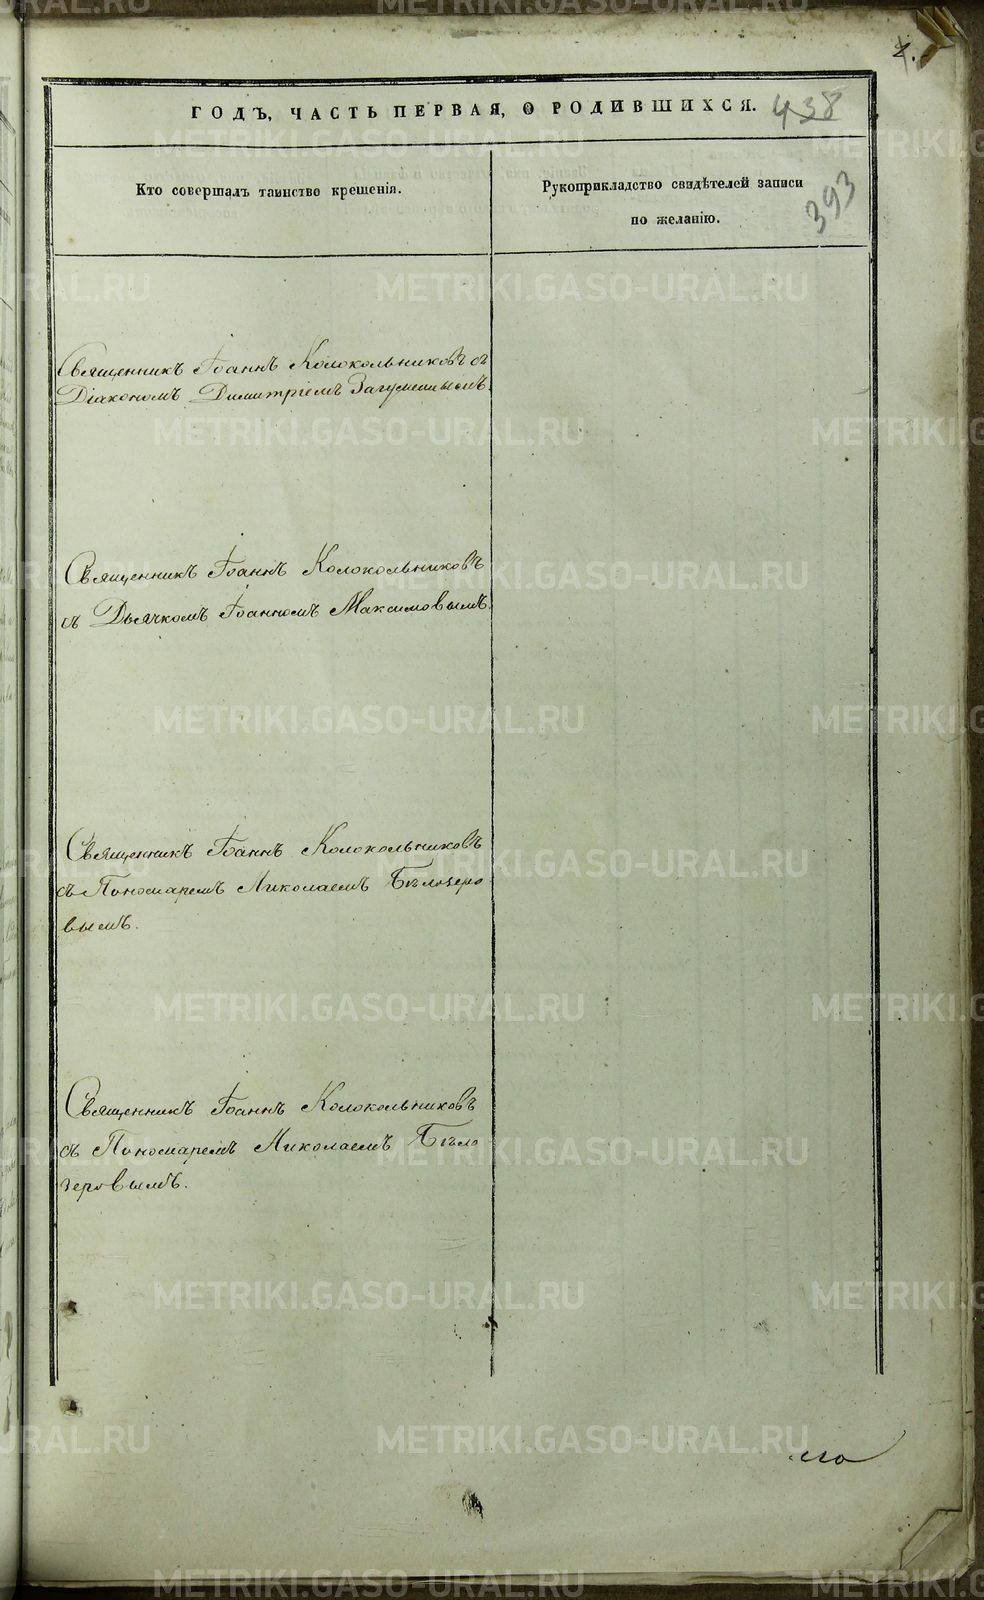 2.
ГОДЪ, ЧАСТЬ ПЕРВАЯ, О РОДИВШИХСЯ. 438
Кто совершалъ таинство крещенія.
Рукоприкладство свидѣтелей записи
по желанію.
393
Священникъ Іоаннъ Колокольниковъ съ
Діакономъ Димитріемъ Загуменнымъ.
Священникъ Іоаннъ Колокольниковъ
съ Дьячкомъ Іоанномъ Максимовымъ.
Священникъ Іоаннъ Колокольниковъ
съ Пономаремъ Николаемъ Бѣлозеро
вымъ.
Священникъ Іоаннъ Колокольниковъ
съ Пономаремъ Николаемъ Бѣло
зеровымъ.
METRIKI.GASO-URAL.RU